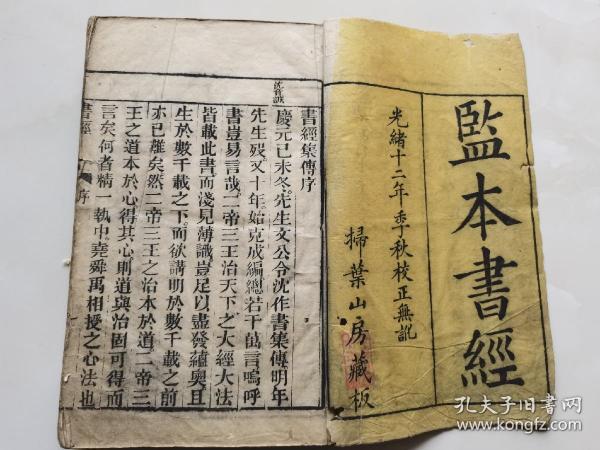 監本書經
光緒十二年季秋校正無訛
掃葉山房藏板
書經集傳序
慶元己未冬先生文公令沈作書集傳明年
先生歿又十年始克成編總若干萬言嗚呼
書豈易言哉二帝三王治天下之大經大法
皆載此書而淺見薄識豈足以盡發蘊奧且
生於數千載之下而欲講明於數千載之前
亦已難矣然二帝三王之治本於道二帝三
王之道本於心得其心則道與治固可得而
言矣何者精一執中堯舜禹相授之心法也
書經 序
孔夫子旧书网
www.kongfz.com